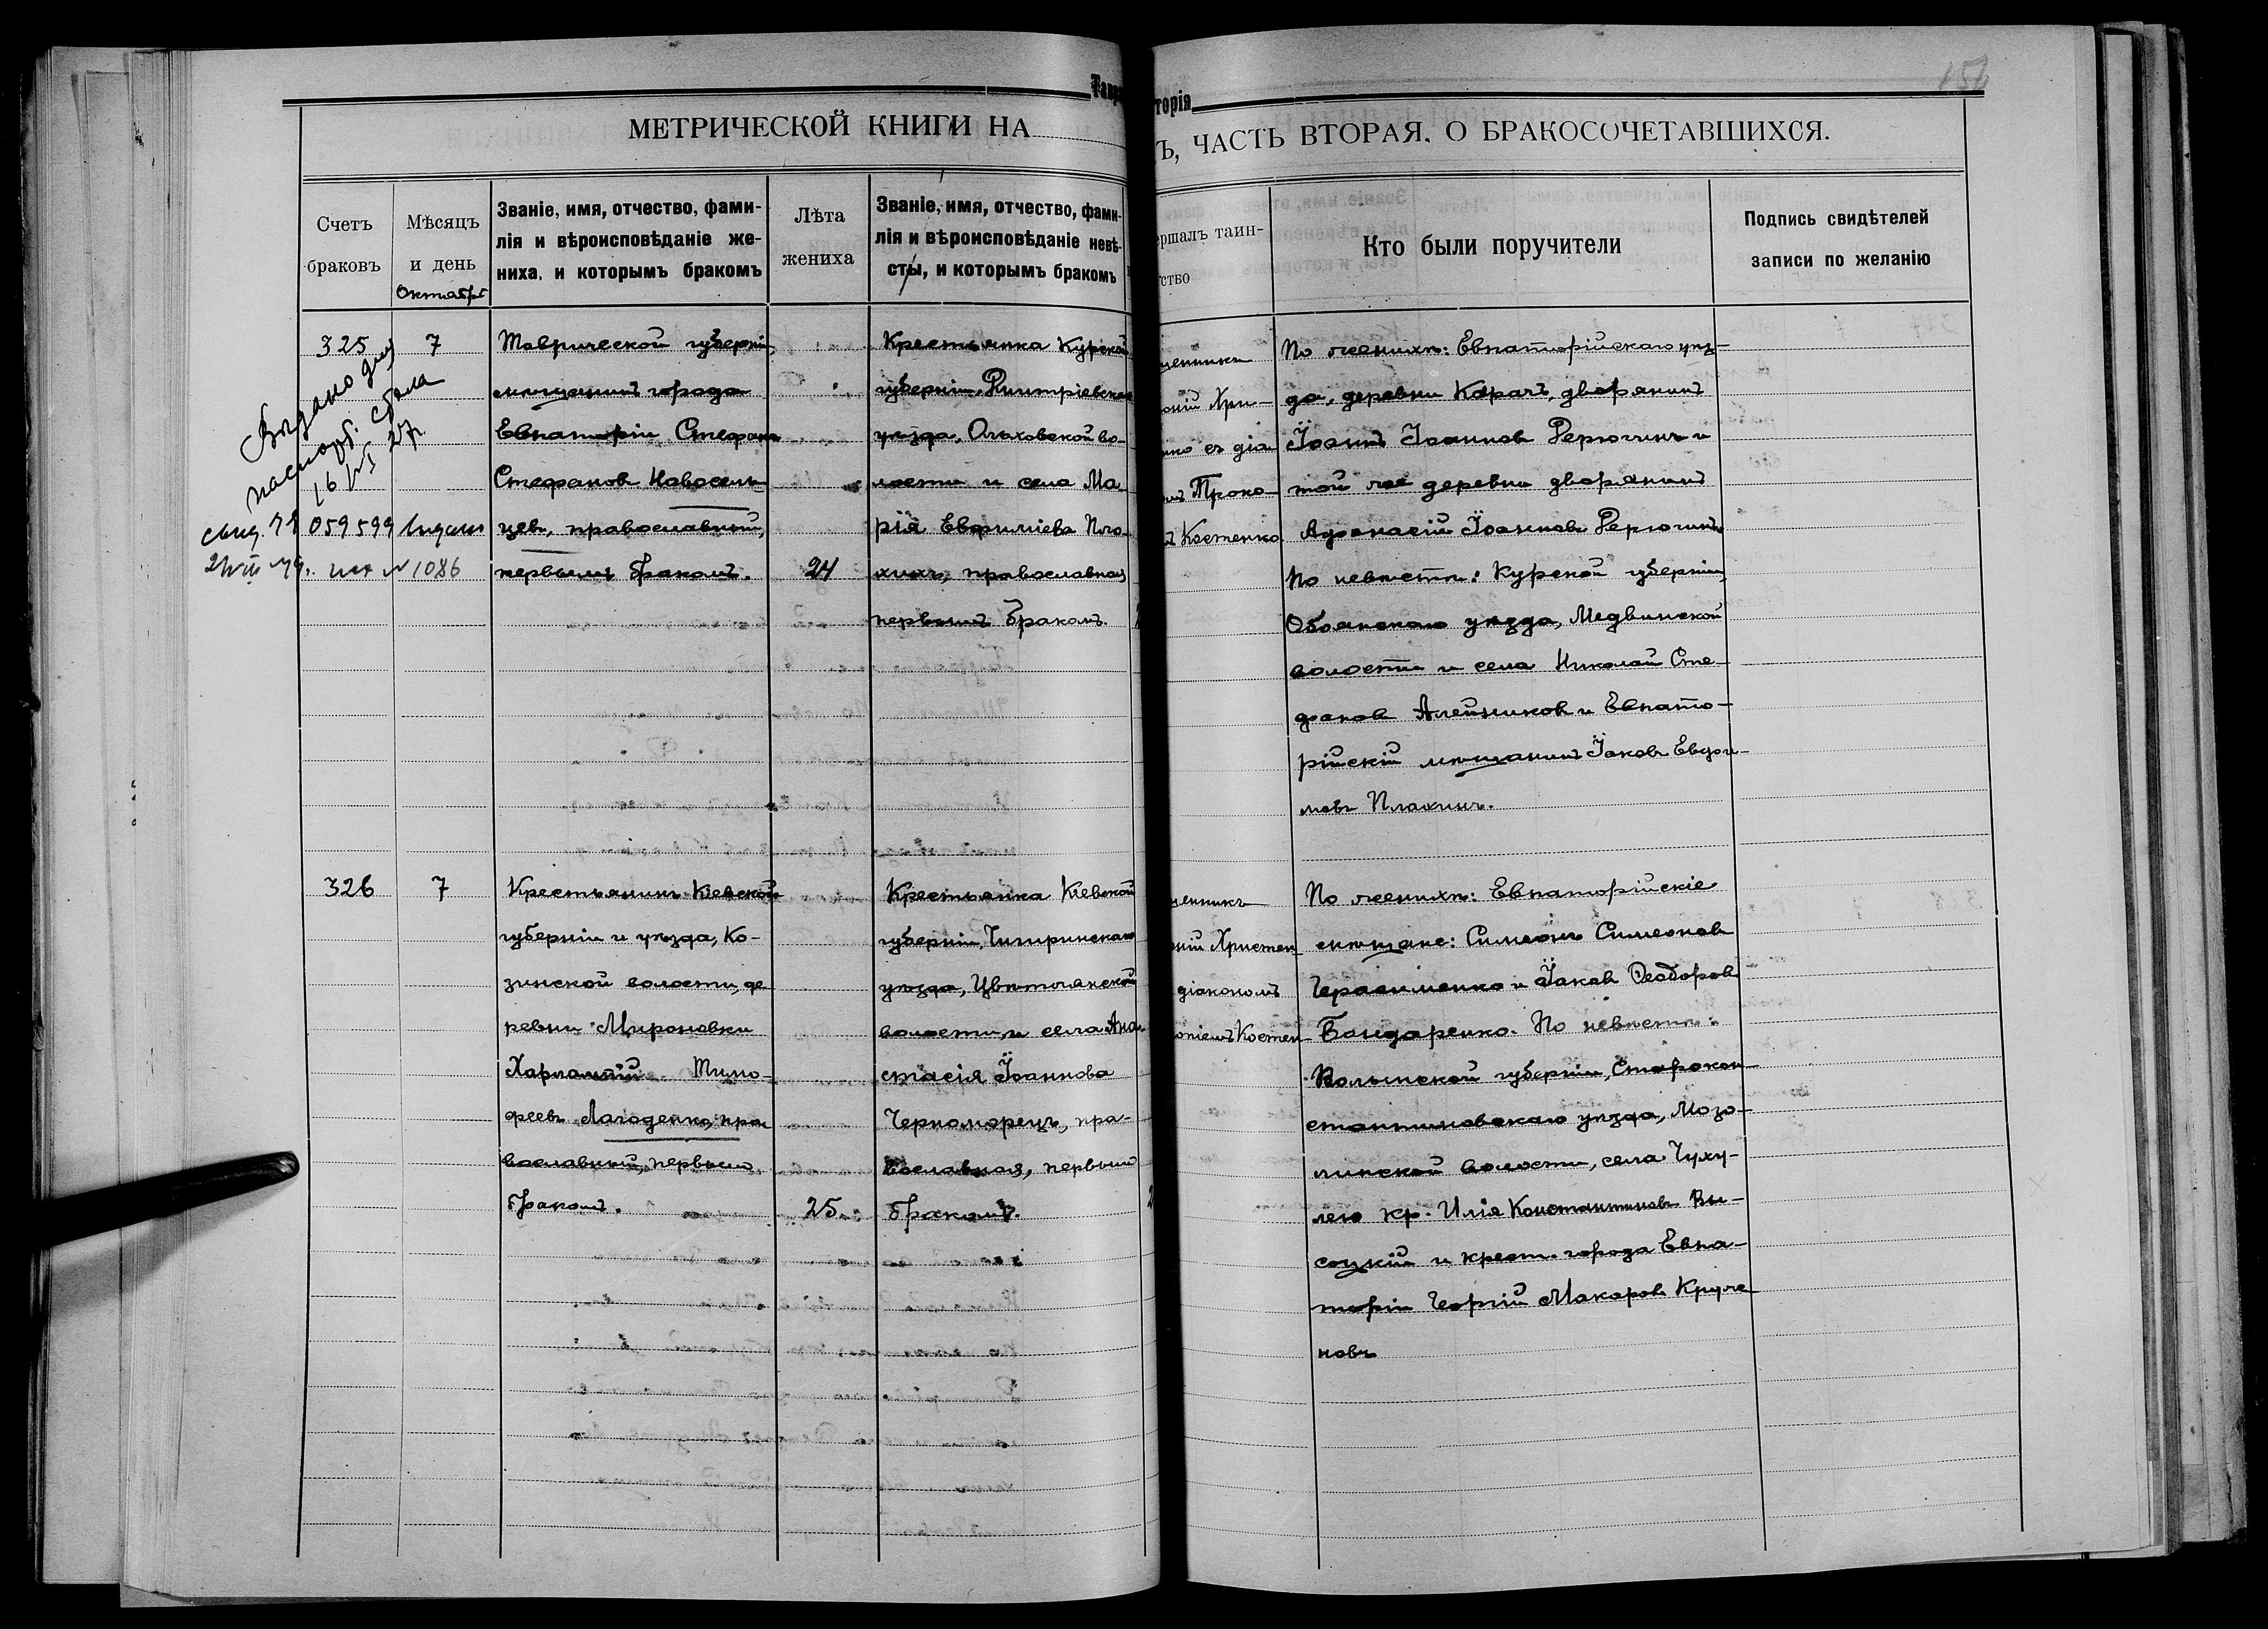 154
Тавр
торія
МЕТРИЧЕСКОЙ КНИГИ НА
Ъ, ЧАСТЬ ВТОРАЯ, О БРАКОСОЧЕТАВШИХСЯ.
Счетъ
браковъ
Мѣсяцъ
и день
Октября
Званіе, имя, отчество, фами-
лія и вѣроисповѣданіе же-
ниха, и которымъ бракомъ
Лѣта
жениха
Званіе, имя, отчество, фами-
лія и вѣроисповѣданіе невѣ-
сты, и которымъ бракомъ
ершалъ таин-
ство
Кто были поручители
Подпись свидѣтелей
записи по желанію
325
7
Выдано для
паспорт. стола
16/VI 27г
свид. 059599 выдан
исх № 1086
Таврической губерніи,
мѣщанинъ города
Евпаторіи Стефанъ
Стефановъ Новосель-
цевъ, православный,
первымъ бракомъ.
24
Крестьянка Курской
губерніи, Дмитріевскаго
уѣзда, Ольховской во-
лости и села Ма-
рія Евфиміева Пло-
хихъ, православная,
первымъ бракомъ.
щенникъ
оній Хри-
нко съ діа
мъ Проко-
Костенко
По женихѣ: Евпаторійскаго уѣз-
да, деревни Карачъ, дворянинъ
Іоаннъ Іоанновъ Дерюгинъ и
той же деревни дворянинъ
Афанасій Іоанновъ Дерюгинъ
По невѣстѣ: Курской губерніи,
Обоянскаго уѣзда, Медвинской
волости и села Николай Сте-
фановъ Алейниковъ и Евпато-
рійскій мѣщанинъ Іаковъ Евдоки-
мовъ Плахинъ.
326
7
Крестьянинъ Кіевской
губерніи и уѣзда, Ко-
зинской волости, де
ревни Мироновки
Харлампій Тимо-
феевъ Лагоденко, пра-
вославный, первымъ
бракомъ.
25
Крестьянка Кіевской
губерніи, Чигиринскаго
уѣзда, Цвѣтнянской
волости и села Ана-
стасія Іоаннова
Черноморецъ, пра-
вославная, первымъ
бракомъ.
щенникъ
оній Христен-
діакономъ
опіемъ Костен-
По женихѣ: Евпаторійскіе
мѣщане: Симеонъ Симеоновъ
Герасименко и Іаковъ Ѳеодоровъ
Бондаренко. По невѣстѣ:
Волынской губерніи, Старокон-
стантиновскаго уѣзда, Моза-
линской волости, села Чуху-
лего кр. Илія Константиновъ Вы-
соцкій и крест. города Евпа-
торіи Георгій Макаровъ Круче
новъ